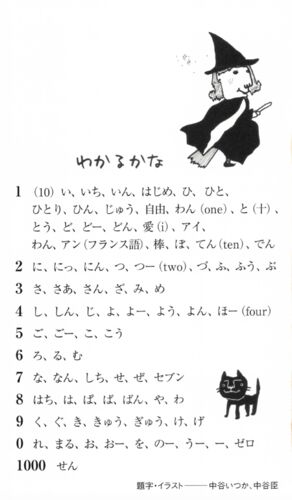 わかるかな
1 (10) い、いち、いん、はじめ、ひ、ひと、
ひとり、ひん、じゅう、自由、わん (one)、と (十)、
とう、ど、どー、どん、愛 (i)、アイ、
わん、アン (フランス語)、棒、ぼ、てん (ten)、でん
2 に、にっ、にん、つ、つー (two)、づ、ふ、ふう、ぶ
3 さ、さあ、さん、ざ、み、め
4 し、しん、じ、よ、よー、よう、よん、ほー (four)
5 ご、ごー、こ、こう
6 ろ、る、む
7 な、なん、しち、せ、ぜ、セブン
8 はち、は、ば、ぱ、ぱん、や、わ
9 く、ぐ、き、きゅう、ぎゅう、け、げ
0 れ、まる、お、おー、を、の、うー、ー、ゼロ
1000 せん
題字・イラスト――中谷いつか、中谷臣